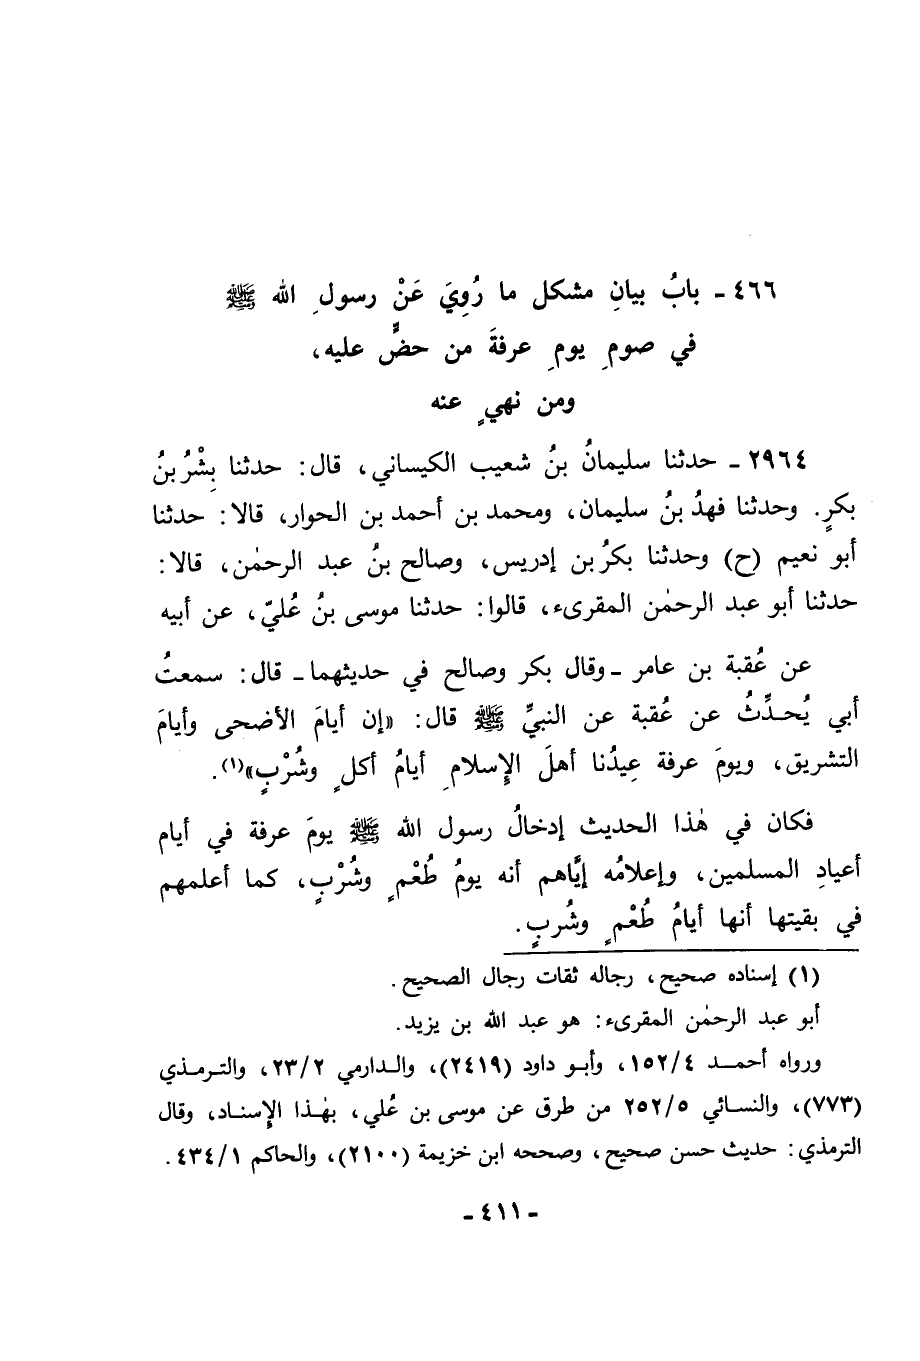 ٤٦٦ ـ بابُ بيانِ مشكل ما رُوِيَ عَنْ رسولِ الله ﷺ
في صومِ يومِ عرفةَ من حضٍّ عليه،
ومن نهيٍ عنه
٢٩٦٤ ـ حدثنا سليمانُ بنُ شعيب الكيساني، قال: حدثنا بِشْرُ بنُ
بكرٍ. وحدثنا فهدُ بنُ سليمان، ومحمد بن أحمد بن الحوار، قالا: حدثنا
أبو نعيم (ح) وحدثنا بكرُ بن إدريس، وصالح بنُ عبد الرحمٰن، قالا:
حدثنا أبو عبد الرحمٰن المقرىء، قالوا: حدثنا موسى بنُ عُليّ، عن أبيه
عن عُقبة بن عامر ـ وقال بكر وصالح في حديثهما ـ قال: سمعتُ
أبي يُحدِّثُ عن عُقبة عن النبيِّ ﷺ قال: «إن أيامَ الأضحى وأيامَ
التشريق، ويومَ عرفة عِيدُنا أهلَ الإِسلامِ أيامُ أكلٍ وشُرْبٍ»(١).
فكان في هٰذا الحديث إدخالُ رسول الله ﷺ يومَ عرفة في أيام
أعيادِ المسلمين، وإعلامُه إيَّاهم أنه يومُ طُعْمٍ وشُرْبٍ، كما أعلمهم
في بقيتها أنها أيامُ طُعْمٍ وشُربٍ.
(١) إسناده صحيح، رجاله ثقات رجال الصحيح.
أبو عبد الرحمٰن المقرىء: هو عبد الله بن يزيد.
ورواه أحمد ١٥٢/٤، وأبو داود (٢٤١٩)، والدارمي ٢٣/٢، والترمذي
(٧٧٣)، والنسائي ٢٥٢/٥ من طرق عن موسى بن عُلي، بهٰذا الإِسناد، وقال
الترمذي: حديث حسن صحيح، وصححه ابن خزيمة (٢١٠٠)، والحاكم ٤٣٤/١.
ـ ٤١١ ـ